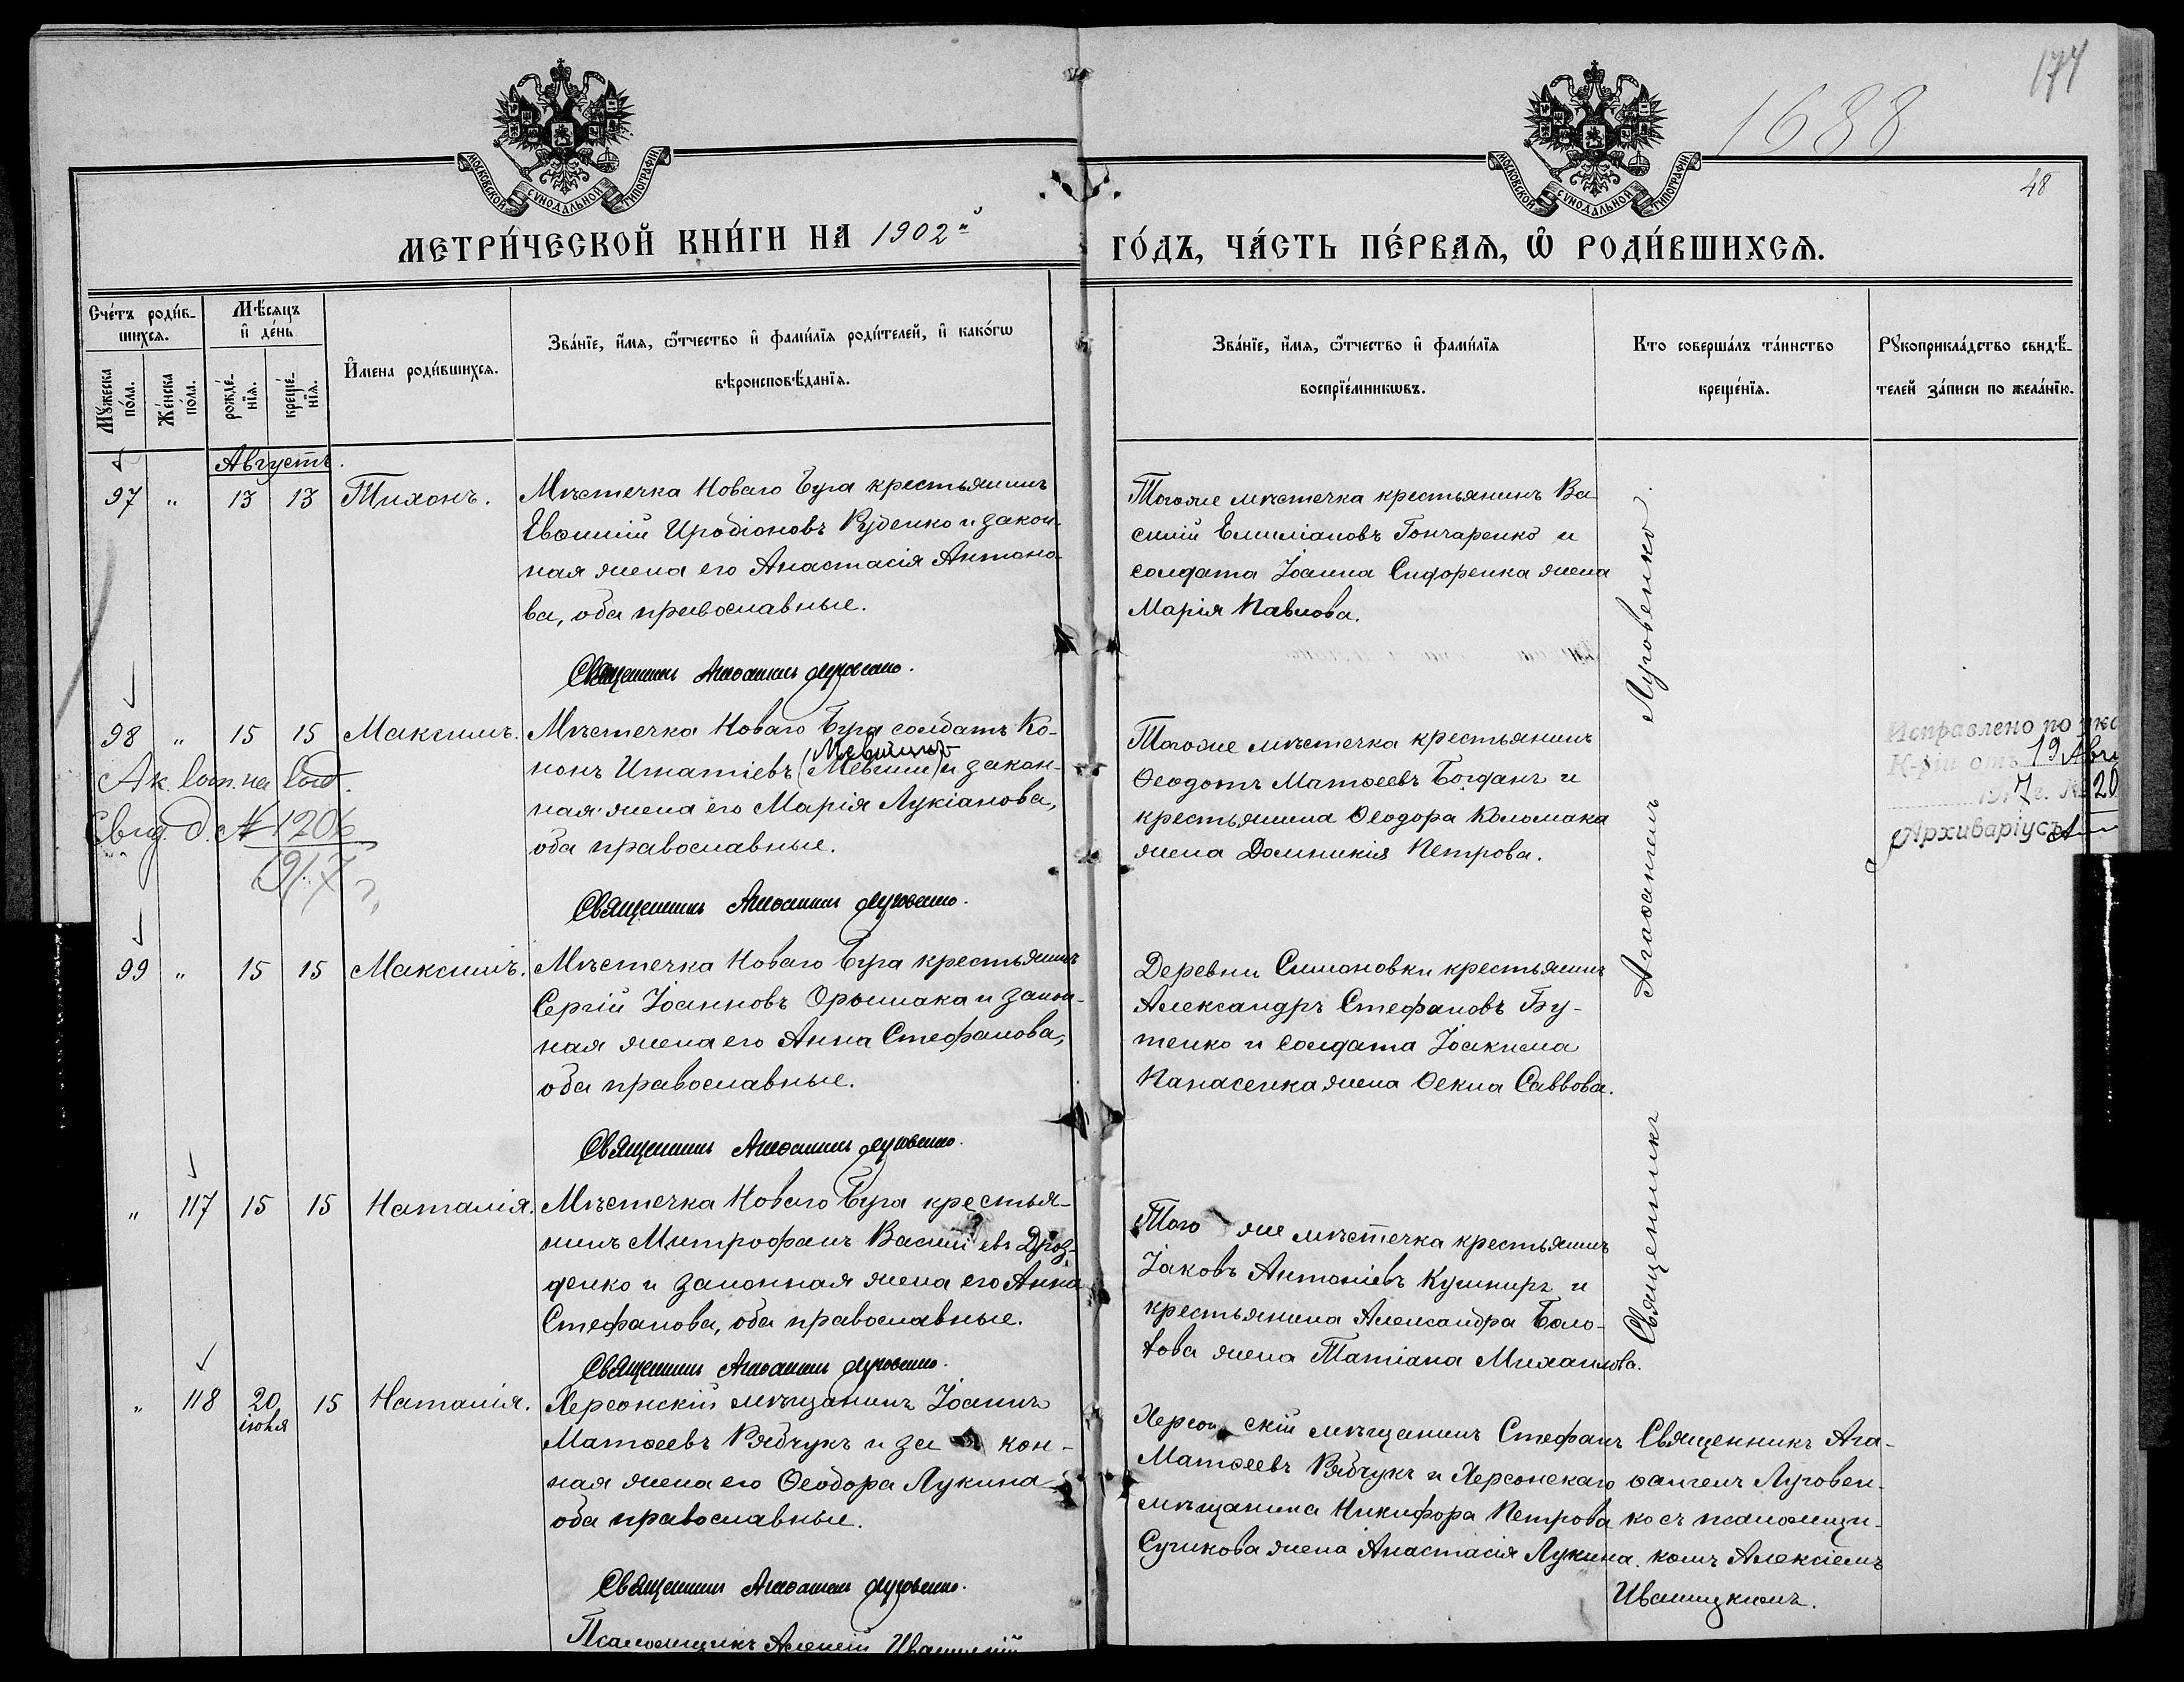 177
1688
48
МОСКОВСКОЙ СѴНОДАЛЬНОЙ ТИПОГРАФІИ
МОСКОВСКОЙ СѴНОДАЛЬНОЙ ТИПОГРАФІИ
МЕТРИ́ЧЕСКОЙ КНИ́ГИ НА 1902й
ГО́ДЪ, ЧА́СТЬ ПЕ́РВАѦ, Ѡ҆ РОДИ́ВШИХСѦ.
Сче́тъ роди́в-
шихсѧ.
Мѣ́сѧцъ
и҆ де́нь
Мꙋ́жеска по́ла.
Же́нска по́ла.
рожде́-
нїѧ.
креще́-
нїѧ.
И҆мена роди́вшихсѧ.
Зва́нїе, и҆́мѧ, ѻ҆́тчество и҆ фами́лїѧ роди́телей, и҆ како́гѡ
вѣроисповѣ́данїѧ.
Зва́нїе, и҆́мѧ, ѻ҆́тчество и҆ фами́лїѧ
воспрїе́мникѡвъ.
Кто соверша́лъ та́инство
креще́нїѧ.
Рꙋкоприкла́дство свидѣ́-
телей за́писи по жела́нїю.
Августъ.
97 " 13 13 Тихонъ.
Мѣстечка Новаго Буга крестьянинъ
Евѳимій Иродіоновъ Руденко и закон-
ная жена его Анастасія Антоно-
ва, оба православные.
Священникъ Агаѳангелъ Луговенко.
Тогоже мѣстечка крестьянинъ Ва-
силій Емиліановъ Гончаренко и
солдата Іоанна Сидоренка жена
Марія Павлова.
98 " 15 15 Максимъ.
Мѣстечка Новаго Буга солдатъ Ко-
нонъ Игнатіевъ (Мевшин) и закон-
ная жена его Марія Лукіанова,
оба православные.
Священникъ Агаѳангелъ Луговенко.
Свид. д. № 1206
1917 г.
Тогоже мѣстечка крестьянинъ
Ѳеодотъ Матѳеевъ Богданъ и
крестьянина Ѳеодора Коломака
жена Домникія Петрова.
Исправлено по ука
К-ріи отъ 19 Авгу
1917 г. № 20
Архиваріусъ
99 " 15 15 Максимъ.
Мѣстечка Новаго Буга крестьянинъ
Сергій Іоанновъ Орышака и закон-
ная жена его Анна Стефанова,
оба православные.
Священникъ Агаѳангелъ Луговенко.
Деревни Симоновки крестьянинъ
Александръ Стефановъ Бу-
тенко и солдата Іоакима
Панасенка жена Ѳекла Саввова.
" 117 15 15 Наталія.
Мѣстечка Новаго Буга крестья-
нинъ Митрофанъ Василіевъ Дроз-
денко и законная жена его Анна
Стефанова, оба православные.
Священникъ Агаѳангелъ Луговенко.
Того же мѣстечка крестьянинъ
Іаковъ Антоніевъ Кушниръ и
крестьянина Александра Боло-
това жена Татіана Михаилова.
Священникъ Агаѳангелъ Луговенко.
" 118 20 15 Наталія.
іюля
Херсонскій мѣщанинъ Іоаннъ
Матѳеевъ Рябчукъ и закон-
ная жена его Ѳеодора Лукина
оба православные.
Священникъ Агаѳангелъ Луговенко.
Псаломщикъ Алексій Ивашицкій
Херсонскій мѣщанинъ Стефанъ
Матѳеевъ Рябчукъ и Херсонскаго
мѣщанина Никифора Петрова
Сучкова жена Анастасія Лукина.
Священникъ Ага-
ѳангелъ Луговен-
ко съ псаломщи-
комъ Алексіемъ
Ивашицкимъ.